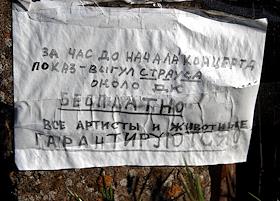 ЗА ЧАС ДО НАЧАЛА КОНЦЕРТА
ПОКАЗ-ВЫГУЛ СТРАУСА
ОКОЛО ДК
БЕСПЛАТНО
ВСЕ АРТИСТЫ И ЖИВОТНЫЕ
ГАРАНТИРУЮТСЯ